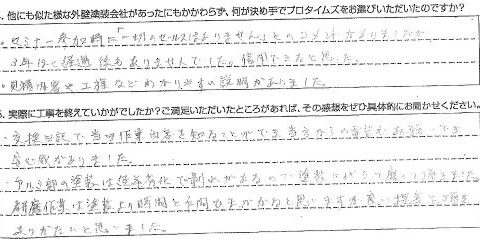 . 他にも似た様な外壁塗装会社があったにもかかわらず、何が決め手でプロタイムズをお選びいただいたのですか?
・セミナー参加時に「一切のセールスはありません」とのコメントがありましたが
3年ほど経過 後もありませんでした。信用できたと思った。
・見積内容や工程などわかりやすい説明がありました。
. 実際に工事を終えていかがでしたか?ご満足いただいたところがあれば、その感想をぜひ具体的にお聞かせください。
・交換日記で当日作業内容を知ることができ、
安心感がありました。
・アルミ部の塗装は経年劣化で剥れがある
研磨作業は塗装より時間と手間もかかるかと思いますが
ありがたいと思いました。